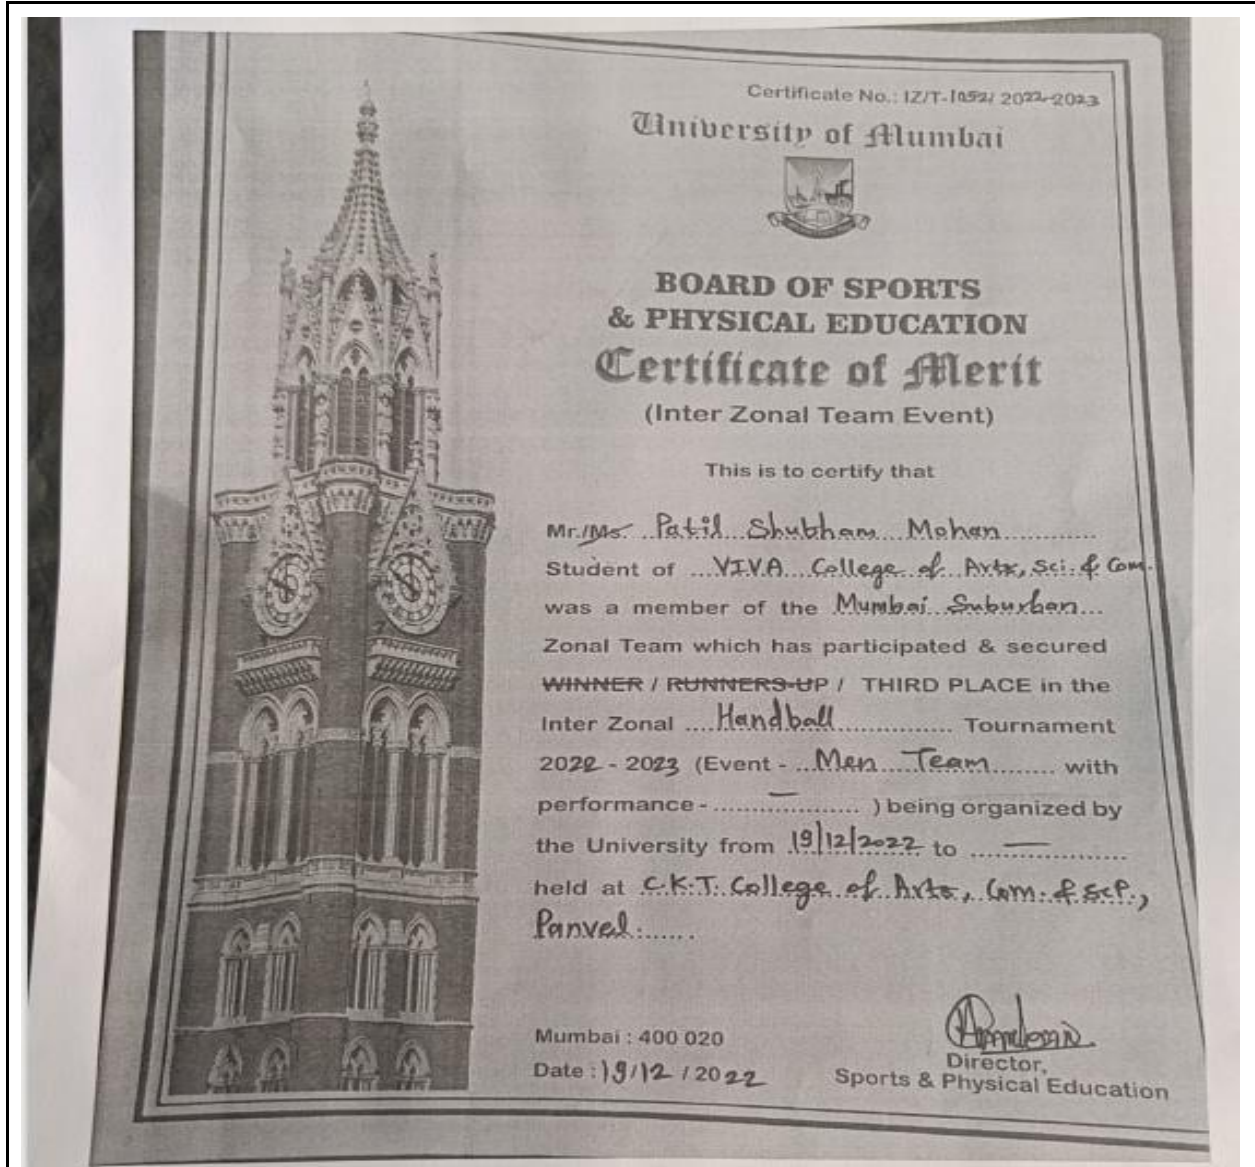 Certificate No.: IZ/T-1052/ 2022-2023
University of Mumbai
BOARD OF SPORTS
& PHYSICAL EDUCATION
Certificate of Merit
(Inter Zonal Team Event)
This is to certify that
Mr./Ms. Patil Shubham Mohan
Student of VIVA College of Arts, Sci. & Com.
was a member of the Mumbai Suburban
Zonal Team which has participated & secured
WINNER / RUNNERS-UP / THIRD PLACE in the
Inter Zonal Handball Tournament
2022 - 2023 (Event - Men Team with
performance - — ) being organized by
the University from 19/12/2022 to —
held at C.K.T. College of Arts, Com. & Sci.,
Panvel
Mumbai : 400 020
Date : 19/12 / 2022
Director,
Sports & Physical Education